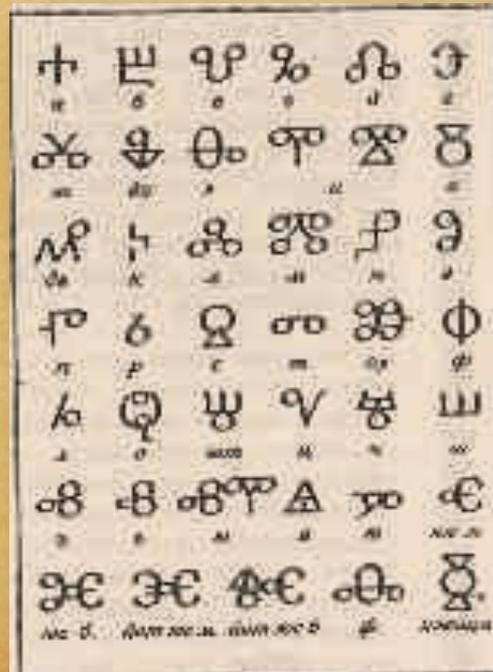 Ⰰ Ⰱ Ⰲ Ⰳ Ⰴ Ⰵ
а б в г д е
Ⰶ Ⰷ Ⰸ Ⰺ Ⰹ Ⰻ
ж дз з и
Ⰼ Ⰽ Ⰾ Ⰿ Ⱀ Ⱁ
к л м н о
Ⱂ Ⱃ Ⱄ Ⱅ Ⱆ Ⱇ
п р с т оу ф
Ⱈ Ⱉ Ⱋ Ⱌ Ⱍ Ⱎ
х о шт ц ч ш
Ⱏ Ⱐ ⰟⰊ Ⱑ Ⱓ Ⱔ
ъ ь ы ю юс м
Ⱘ Ⱗ Ⱙ Ⱚ Ⱛ
юс б. йот юс м йот юс б ф. ижица